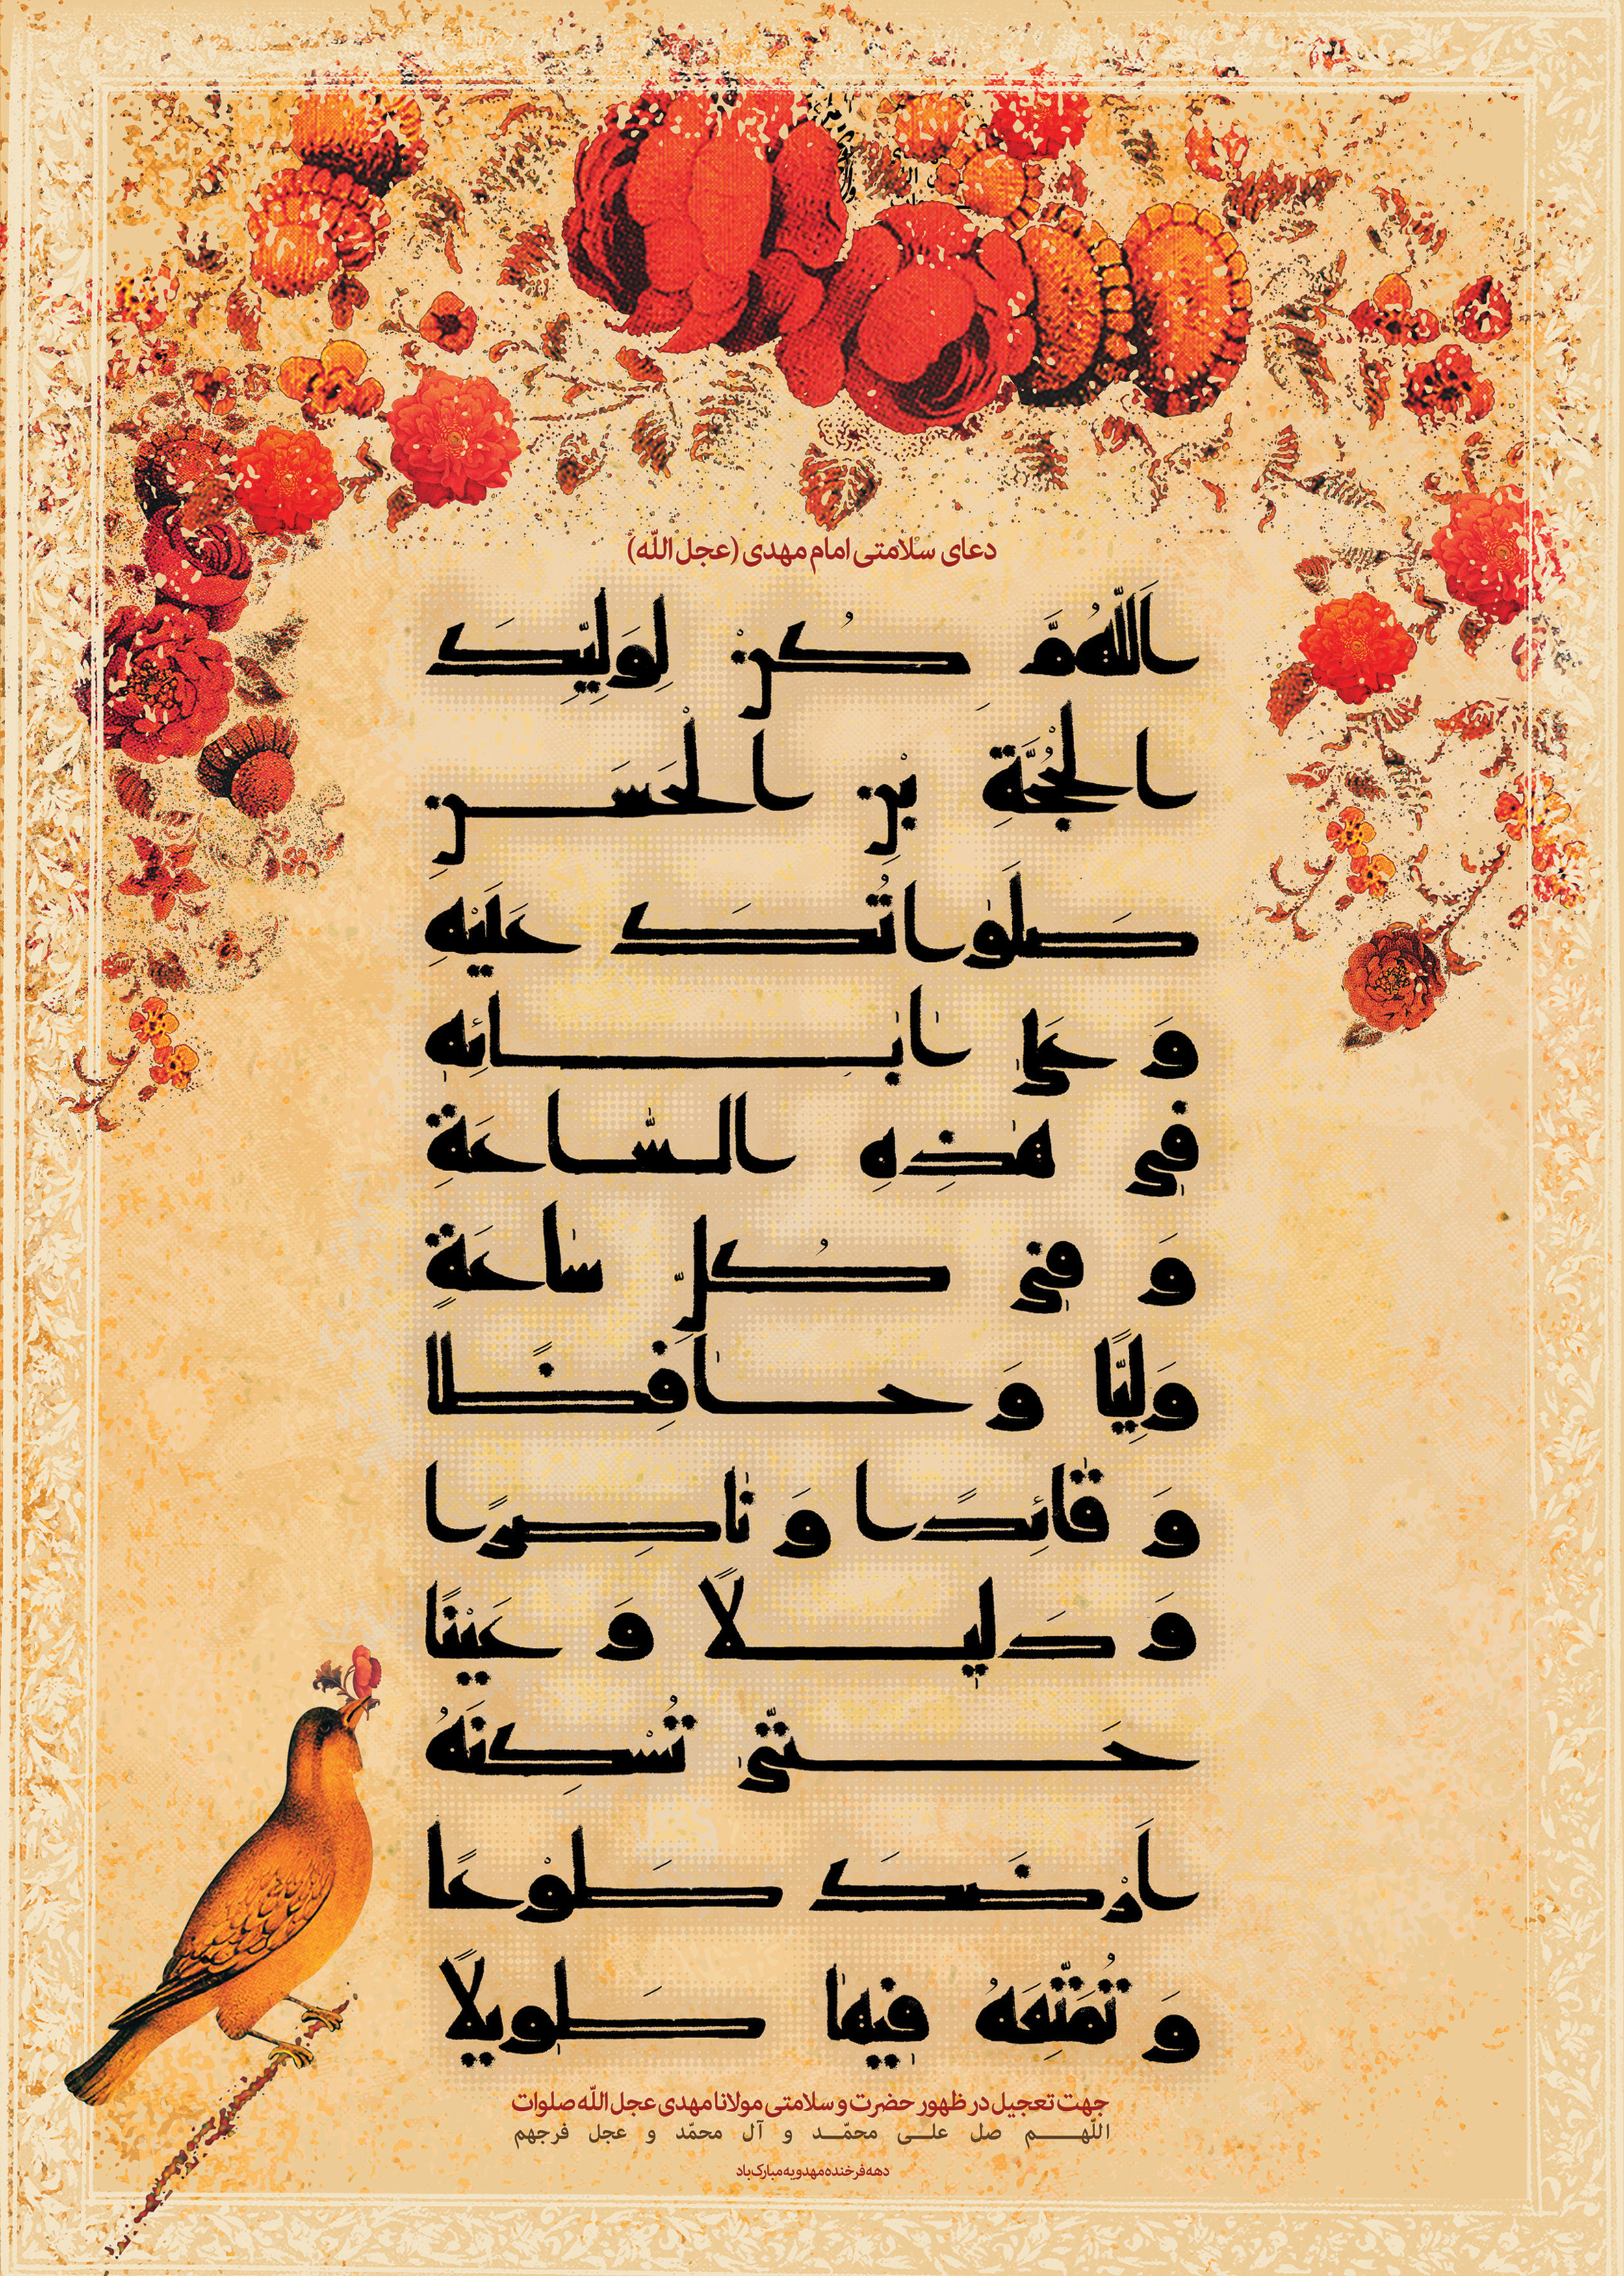 دعای سلامتی امام مهدی (عجل الله)
اَللّٰهُمَّ كُنْ لِوَلِيِّكَ
الْحُجَّةِ بْنِ الْحَسَنِ
صَلَواتُكَ عَلَيْهِ
وَ عَلىٰ آبائِهِ
في هٰذِهِ السّاعَةِ
وَ في كُلِّ ساعَةٍ
وَلِيًّا وَ حافِظًا
وَ قائِدًا وَ ناصِرًا
وَ دَليلًا وَ عَيْنًا
حَتّىٰ تُسْكِنَهُ
اَرْضَكَ طَوْعًا
وَ تُمَتِّعَهُ فيها طَويلًا
جهت تعجیل در ظهور حضرت و سلامتی مولانا مهدی عجل الله صلوات
اللّهم صل علی محمّد و آل محمّد و عجل فرجهم
دهه فرخنده مهدویه مبارک باد